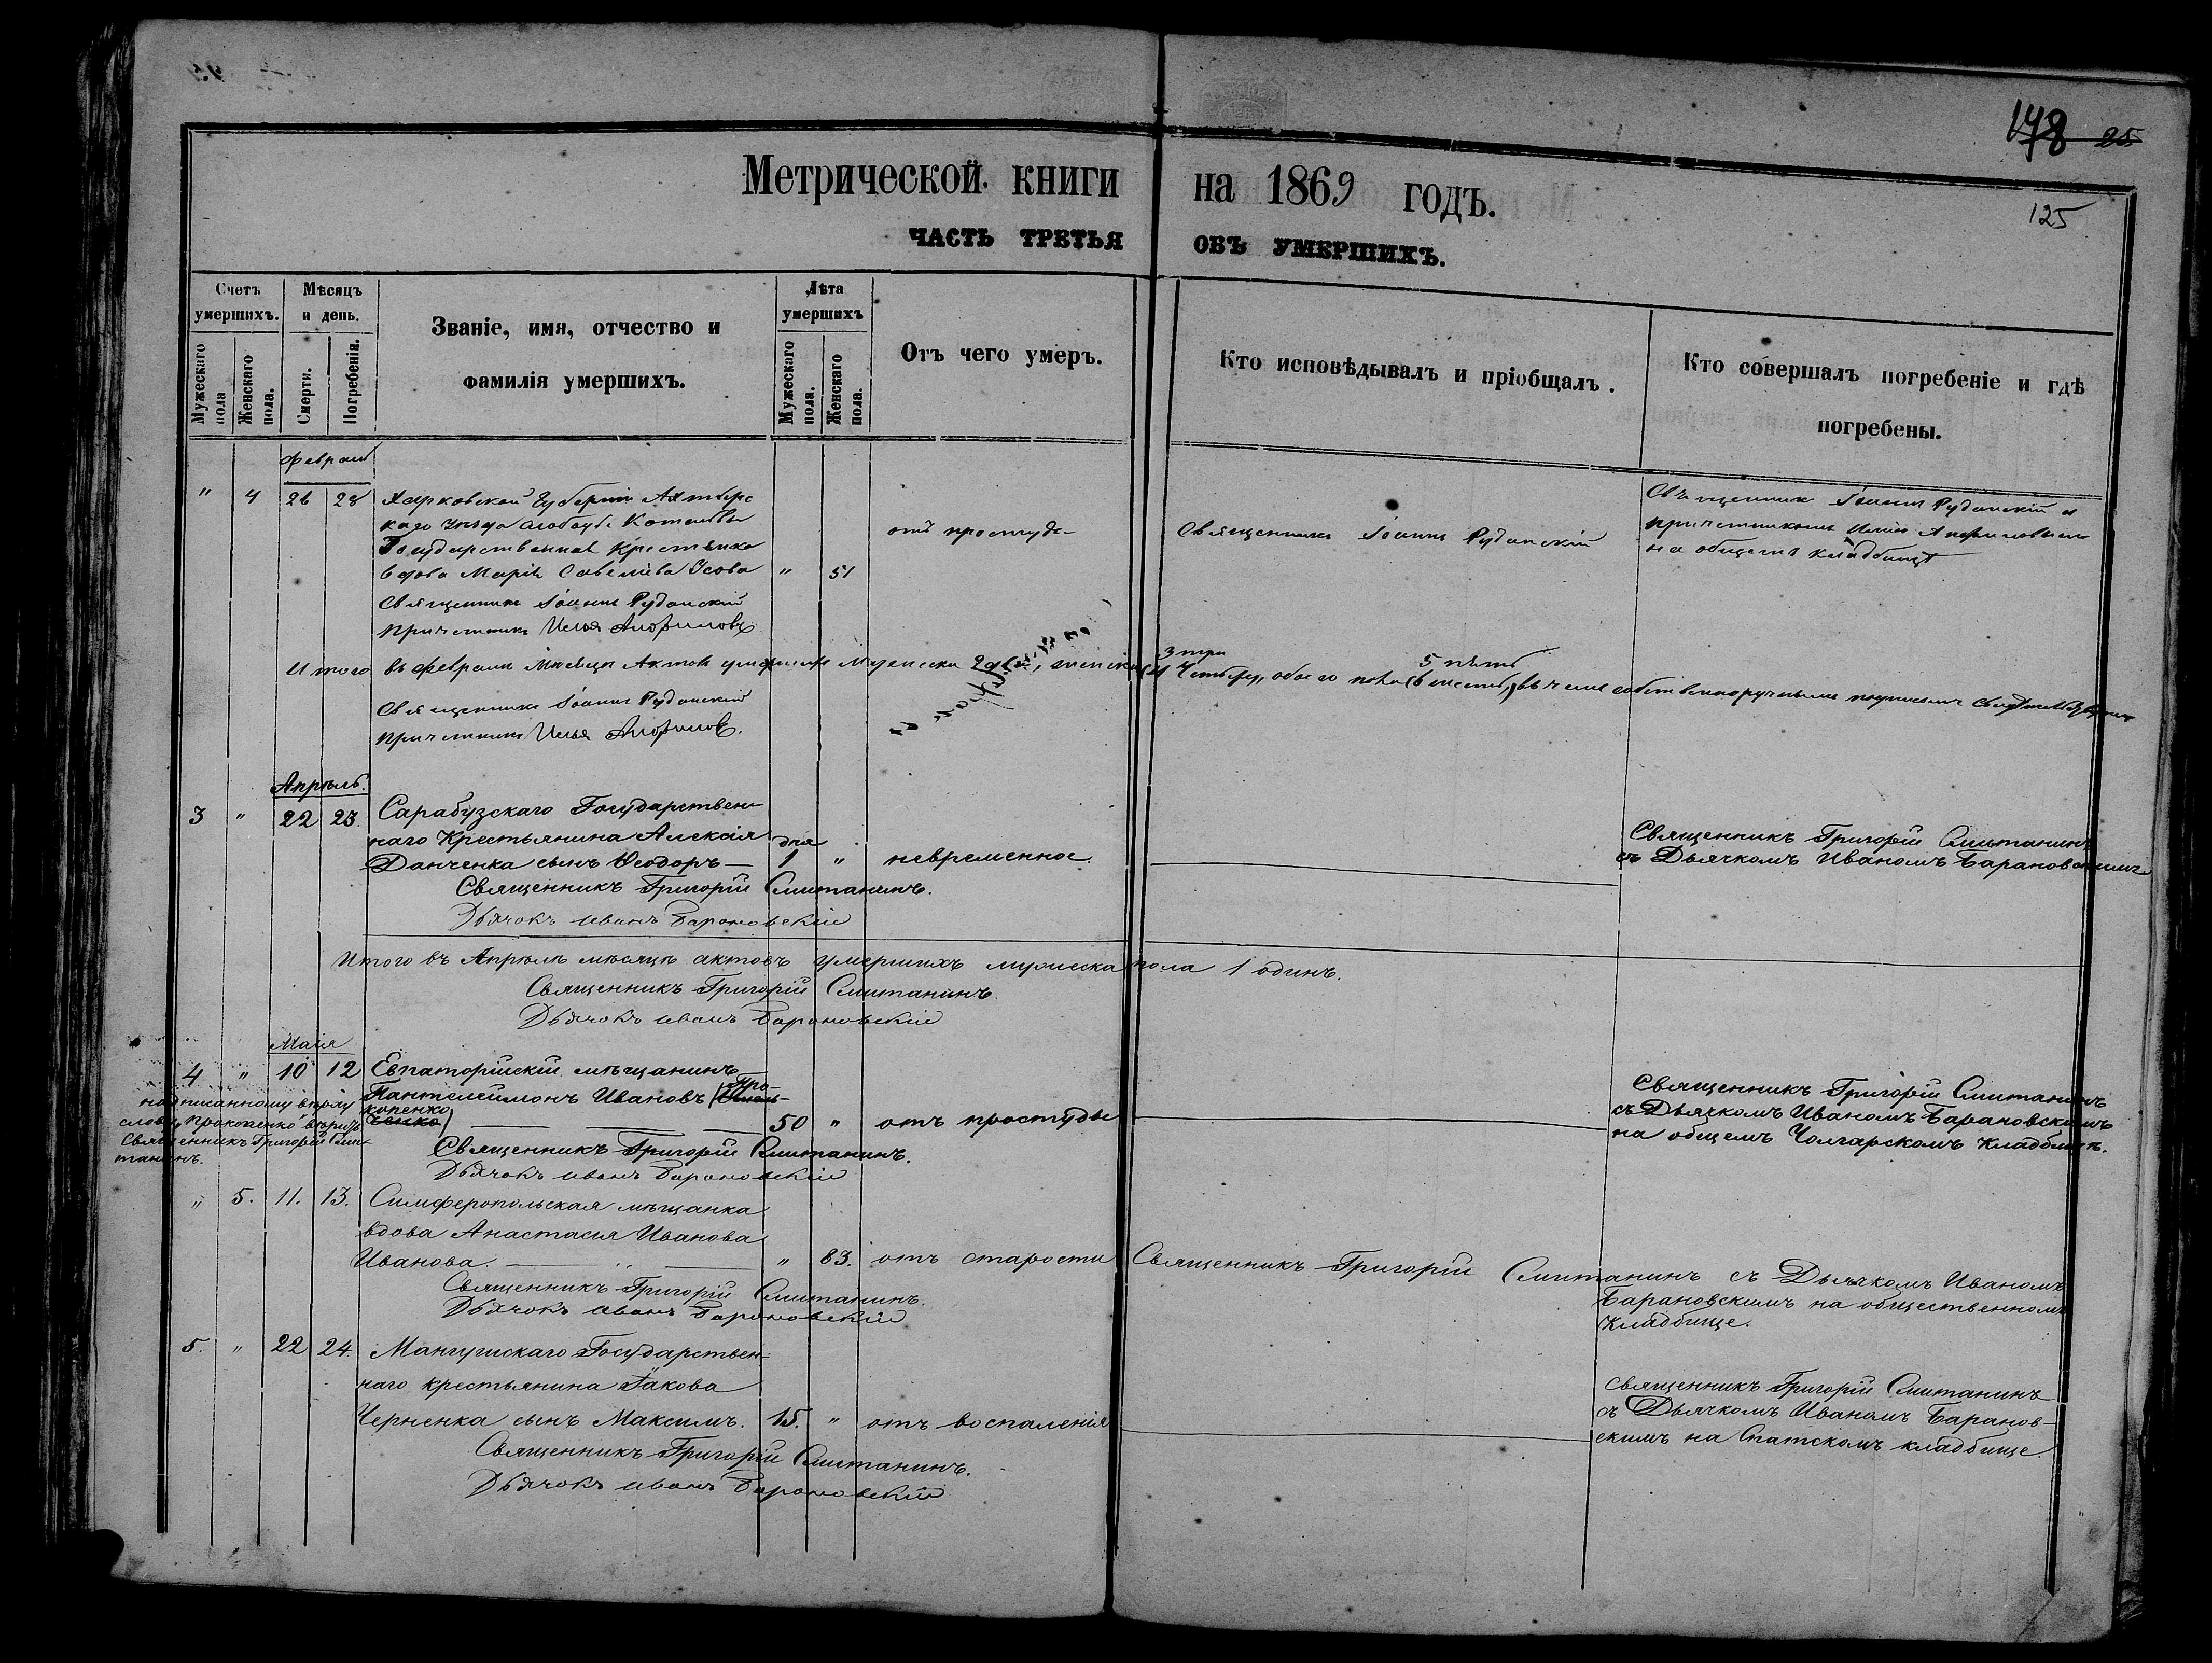 178 25
125
Метрической книги на 1869 годъ.
ЧАСТЬ ТРЕТЬЯ ОБЪ УМЕРШИХЪ.
Счетъ умершихъ.
Мужескаго пола
Женскаго пола.
Мѣсяцъ и день.
Смерти.
Погребенія.
Званіе, имя, отчество и
фамилія умершихъ.
Лѣта умершихъ
Мужескаго пола.
Женскаго пола.
Отъ чего умеръ.
Кто исповѣдывалъ и пріобщалъ.
Кто совершалъ погребеніе и гдѣ
погребены.
Февраль
" 4 26 28 Харковской Губерніи Ахтырс
каго уѣзда слободы Котельвы
Государственная Крестьянка
вдова Марія Савеліева Усова " 51
отъ простуды
Священникъ Іоаннъ Руданскій
Священникъ Іоаннъ Руданскій и
причетникомъ
на общемъ кладбищѣ
Священникъ Іоаннъ Руданскій
причетникъ Илья
Итого въ Февралѣ мѣсяцѣ Актовъ умершихъ мужеска 2 два, женска 3 три (4 четыре), обоего пола 5 пять (6 шесть,) въ чемъ собственноручнымъ подписомъ
Священникъ Іоаннъ Руданскій
причетникъ Илья
Апрѣль.
3 " 22 23. Сарабузскаго Государствен-
наго Крестьянина Алексія
Данченка сынъ Ѳеодоръ — дня 1 " невременное.
Священникъ Григорій Смитанинъ
съ Дьячкомъ Иваномъ Барановскимъ
Священникъ Григорій Смитанинъ.
Дьячокъ Иванъ Барановскій
Итого въ Апрѣлѣ мѣсяцѣ актовъ умершихъ мужеска пола 1 одинъ.
Священникъ Григорій Смитанинъ.
Дьячокъ Иванъ Барановскій
Маія
4 " 10 12 Евпаторійскій мѣщанинъ
Пантелеимонъ Ивановъ (Про-
копенко) 50 " отъ простуды
Священникъ Григорій Смитанинъ
съ Дьячкомъ Иваномъ Барановскимъ
на общемъ Чолгарскомъ кладбищѣ.
надписанному вверху
слову Прокопенко вѣрить
Священникъ Григорій Сми-
танинъ.
Священникъ Григорій Смитанинъ.
Дьячокъ Иванъ Барановскій
" 5. 11. 13. Симферопольская мѣщанка
вдова Анастасія Иванова
Иванова. " 83. отъ старости Священникъ Григорій Смитанинъ съ Дьячкомъ Иваномъ
Барановскимъ на общественномъ
кладбище.
Священникъ Григорій Смитанинъ.
Дьячокъ Иванъ Барановскій
5. " 22 24. Мангушскаго Государствен-
наго крестьянина Іакова
Черненка сынъ Максимъ. 15. " отъ воспаленія
Священникъ Григорій Смитанинъ
съ Дьячкомъ Иваномъ Баранов-
скимъ на Спатскомъ кладбище
Священникъ Григорій Смитанинъ.
Дьячокъ Иванъ Барановскій